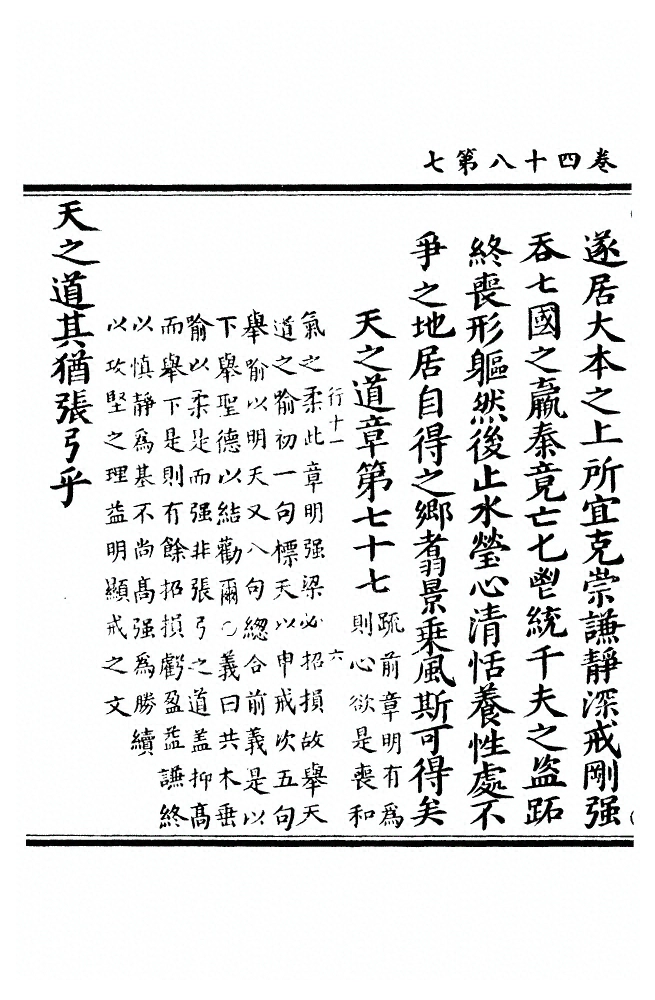 卷四十八第七
遂居大本之上所宜克崇謙靜深戒剛强
吞七國之嬴秦竟亡匕鬯統千夫之盜跖
終喪形軀然後止水瑩心清恬養性處不
爭之地居自得之鄉翥景乘風斯可得矣
天之道章第七十七
疏前章明有爲
則心欲是喪和
行十一
六
氣之柔此章明强梁必招損故舉天
道之喻初一句標天以申戒次五句
舉喻以明天又八句緫合前義是以
下舉聖德以結勸爾○義曰共木垂
喻以柔是而强非張弓之道盖抑高
而舉下是則有餘招損虧盈益謙終
以慎靜爲基不尚高强爲勝續
以攻堅之理益明顯戒之文
天之道其猶張弓乎